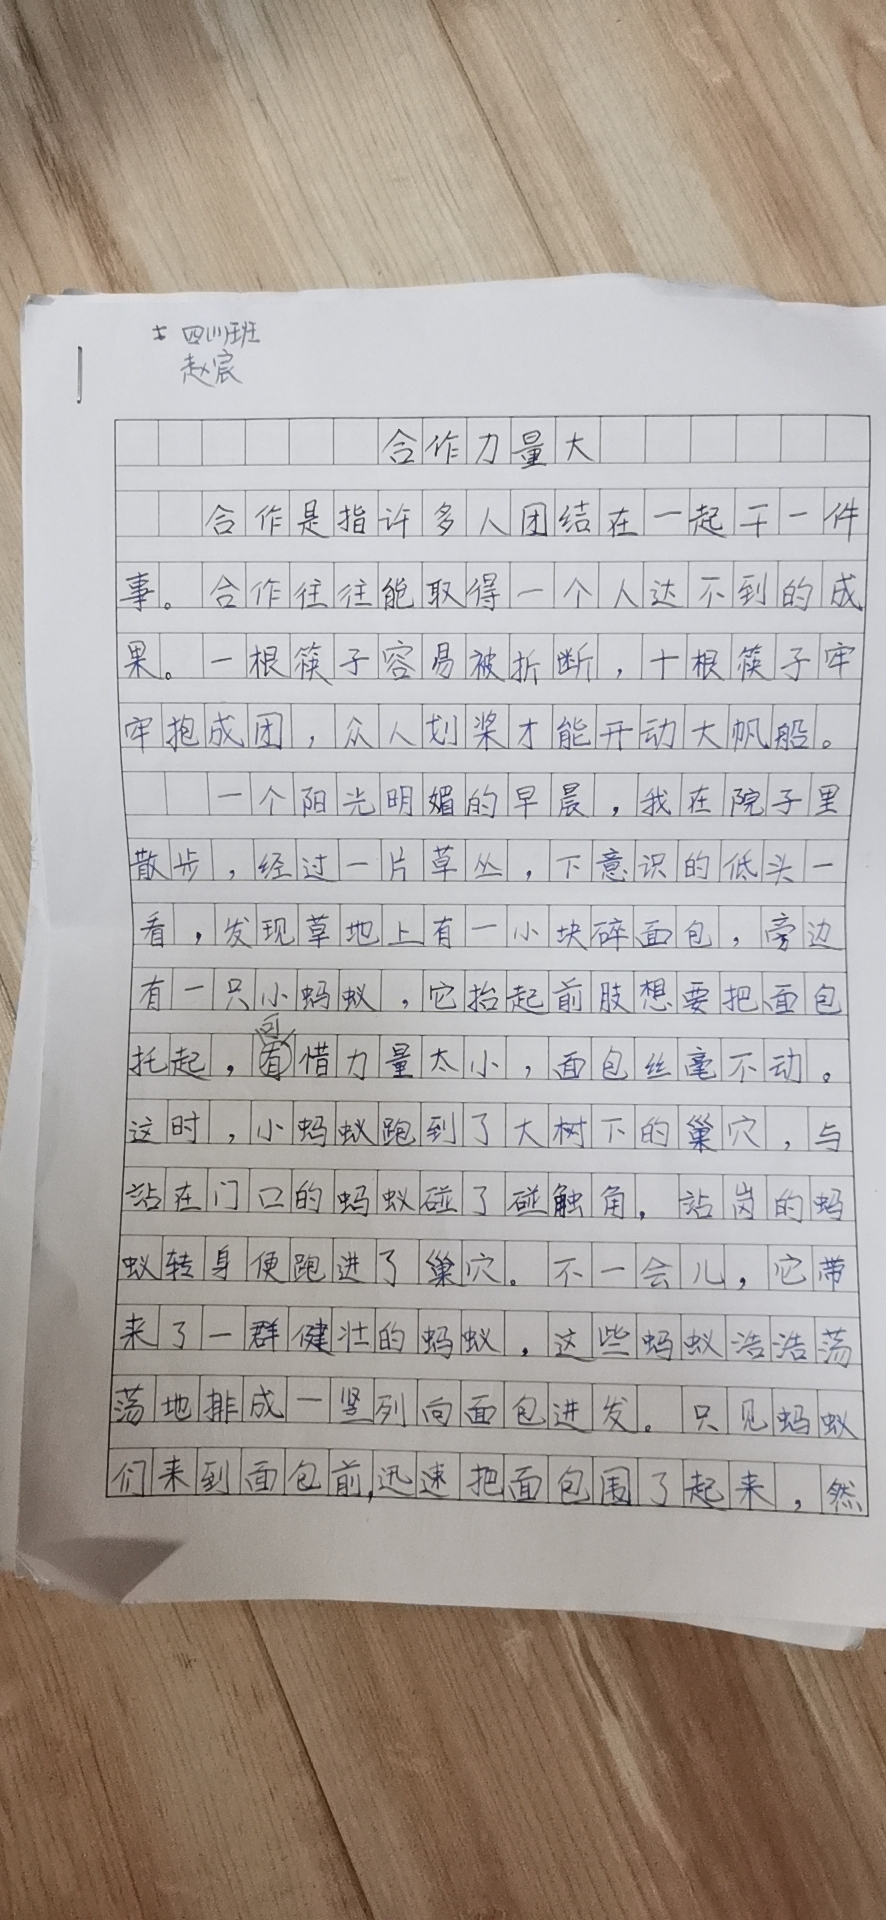 四(1)班
赵宸
合作力量大
合作是指许多人团结在一起干一件
事。合作往往能取得一个人达不到的成
果。一根筷子容易被折断，十根筷子牢
牢抱成团，众人划桨才能开动大帆船。
一个阳光明媚的早晨，我在院子里
散步，经过一片草丛，下意识的低头一
看，发现草地上有一小块碎面包，旁边
有一只小蚂蚁，它抬起前肢想要把面包
托起，可惜力量太小，面包丝毫不动。
这时，小蚂蚁跑到了大树下的巢穴，与
站在门口的蚂蚁碰了碰触角，站岗的蚂
蚁转身便跑进了巢穴。不一会儿，它带
来了一群健壮的蚂蚁，这些蚂蚁浩浩荡
荡地排成一竖列向面包进发。只见蚂蚁
们来到面包前，迅速把面包围了起来，然